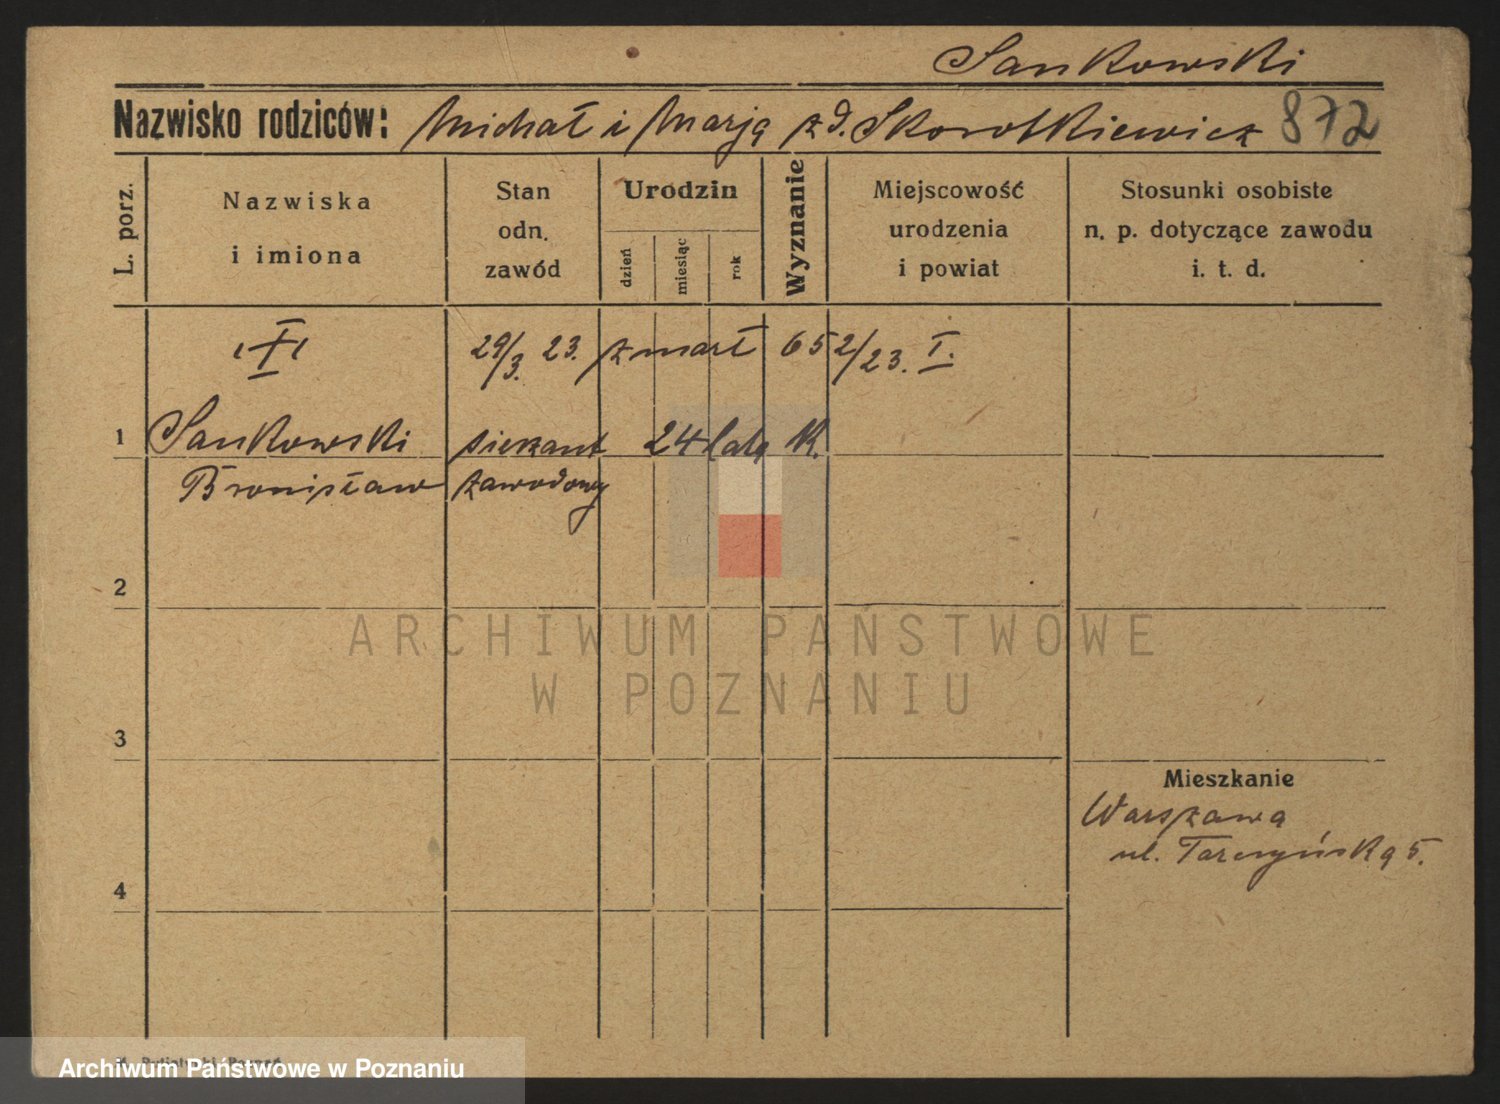 Sankowski
Nazwisko rodziców: Michał i Marją z d. Skorotkiewicz 872
L. porz.
Nazwiska
i imiona
Stan
odn.
zawód
Urodzin
dzień
miesiąc
rok
Wyznanie
Miejscowość
urodzenia
i powiat
Stosunki osobiste
n. p. dotyczące zawodu
i. t. d.
29/3. 23. zmarł 652/23. I.
1 Sankowski sierżant 24 lata K.
Bronisław zawodowy
2
ARCHIWUM PAŃSTWOWE
W POZNANIU
3
Mieszkanie
Warszawa
ul. Tarczyńska 5.
4
Archiwum Państwowe w Poznaniu